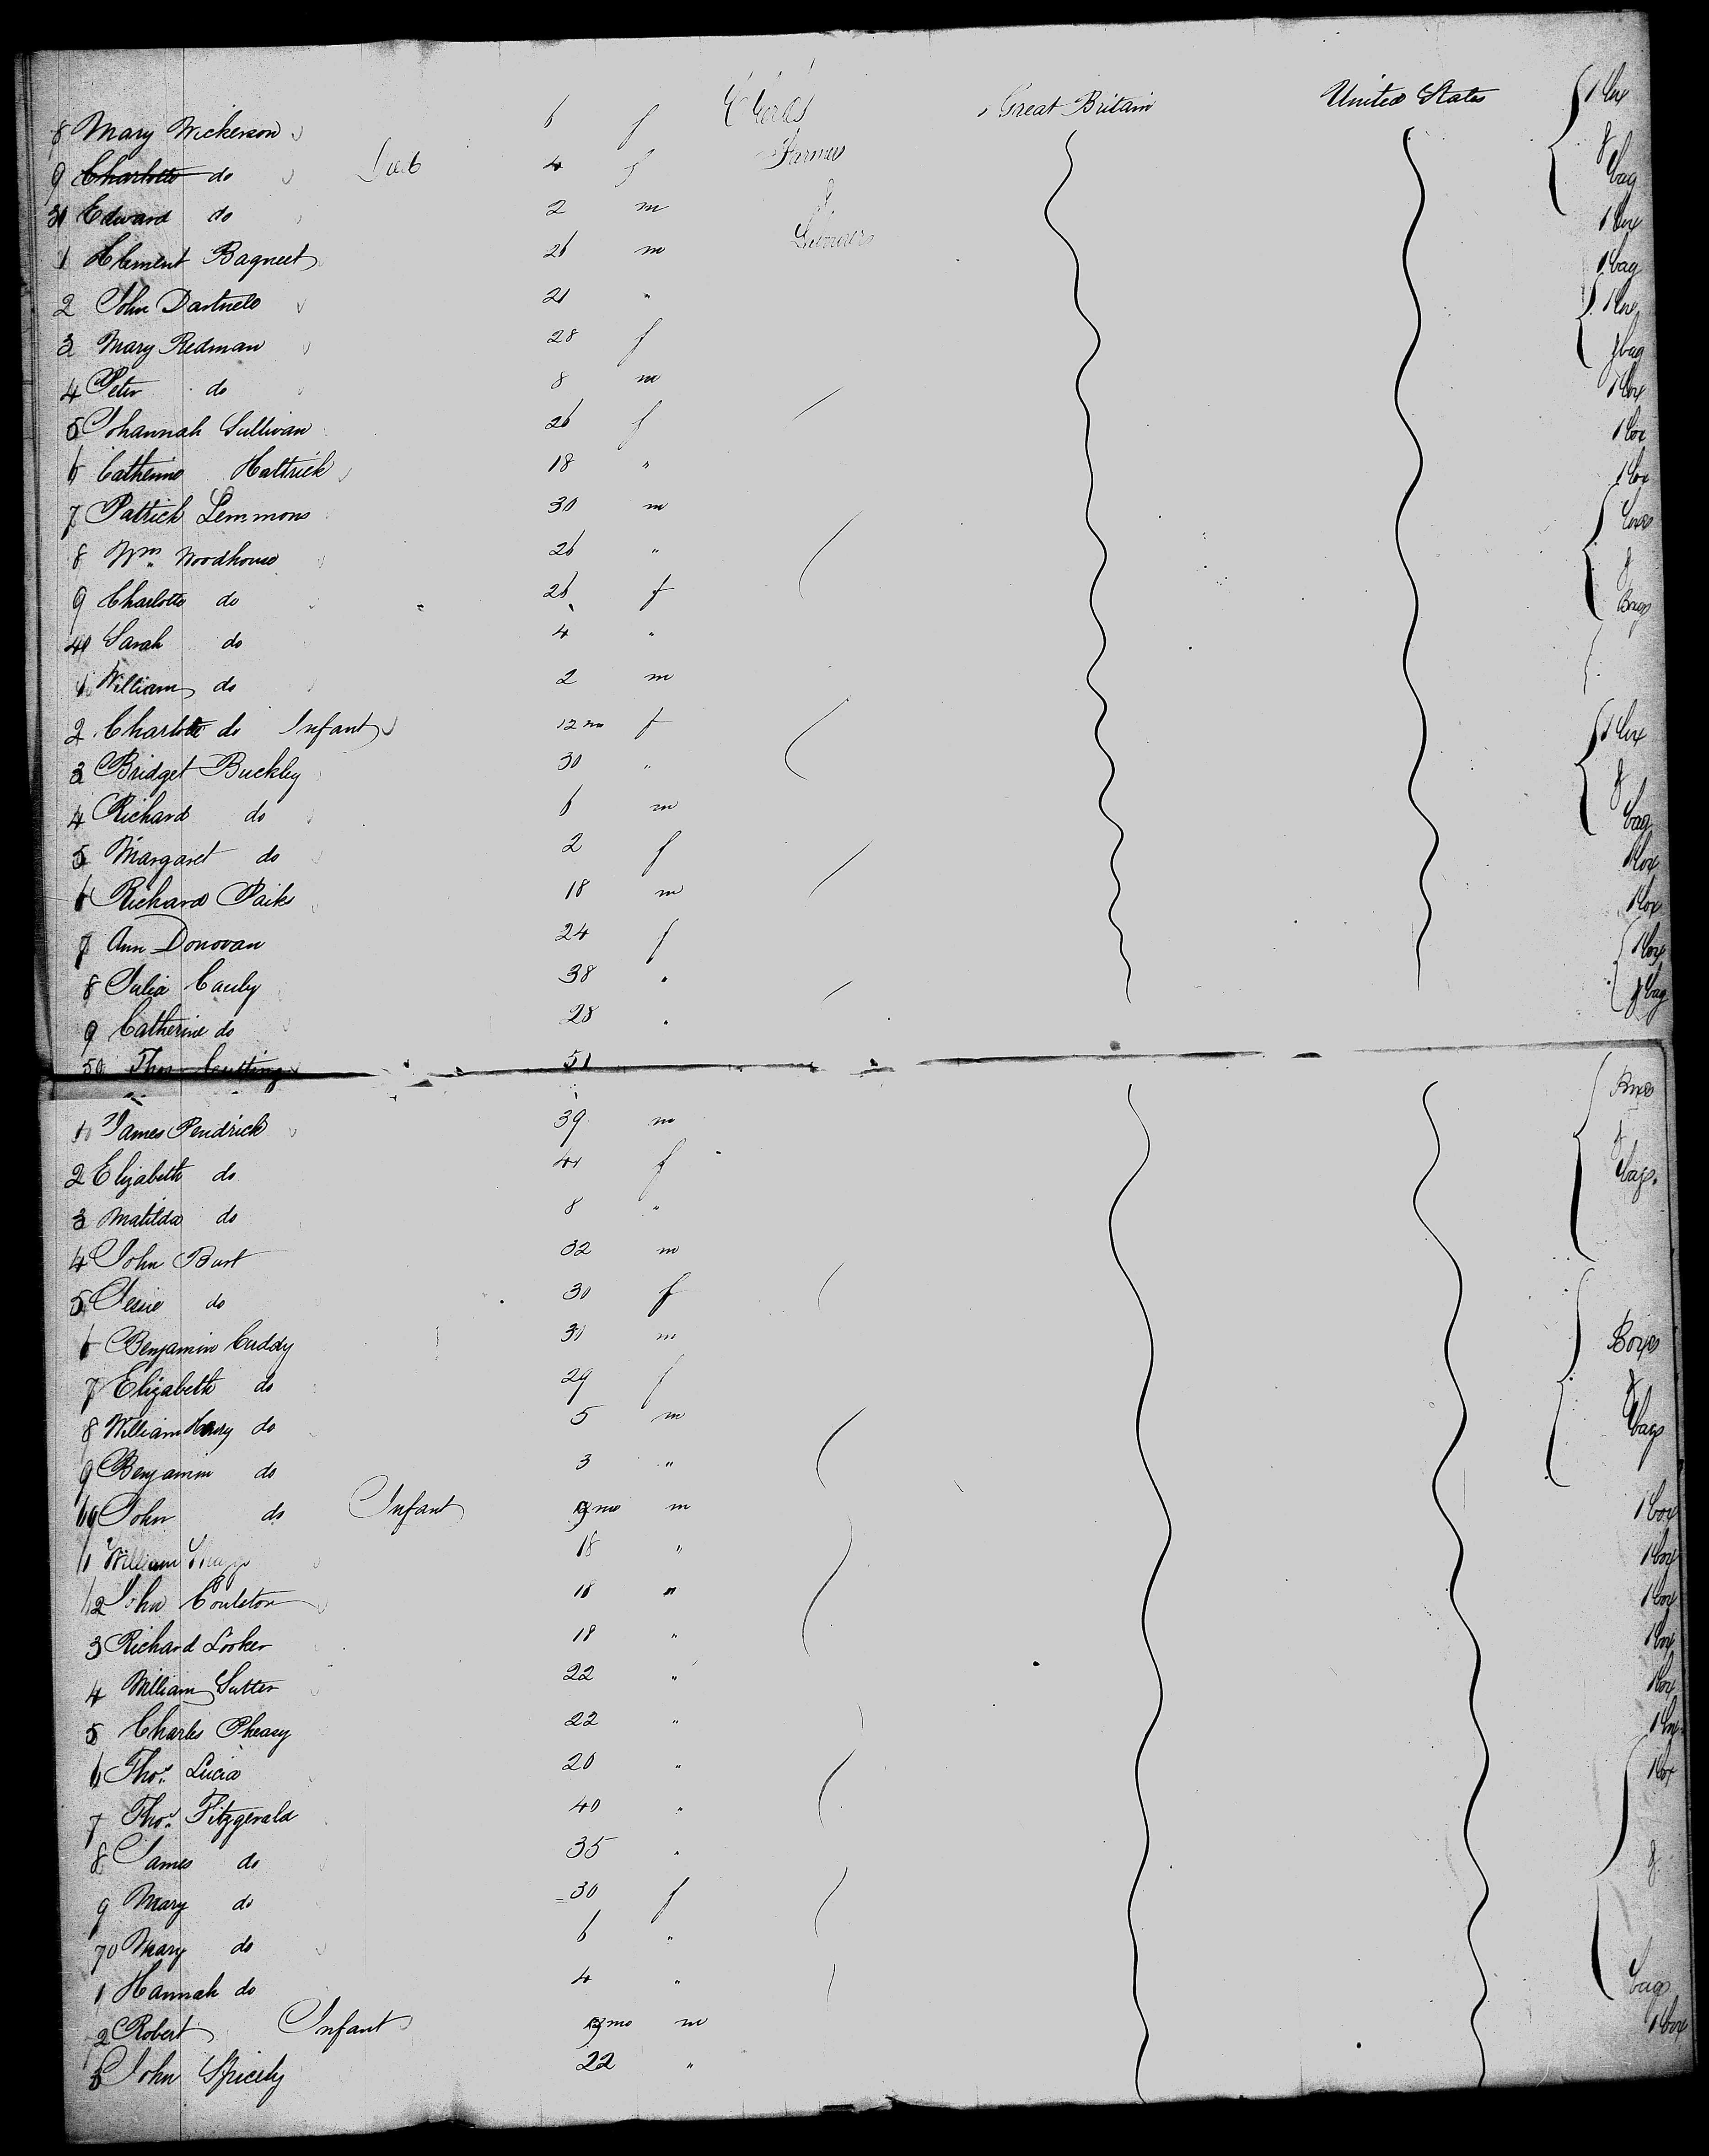 8 Mary Wickerson 6 f Clerks Great Britain United States 1 box
9 Charlotte do 4 f Farmers & bag
30 Edward do 2 m & 1 box
1 Clement Bagneet 26 m Labourers 1 bag
2 John Dartnele 21 " 1 box
3 Mary Redman 28 f & bag
4 Peter do 8 m 1 box
5 Johannah Sullivan 26 f 1 box
6 Catherine Hattrick 18 " 1 box
7 Patrick Lemmons 30 m boxes
8 Wm Woodhouse 26 " &
9 Charlotte do 26 f Bags
40 Sarah do 4 "
1 William do 2 m
2 Charlotte do Infant 12 mo f 1 box
3 Bridget Buckley 30 " &
4 Richard do 6 m bag
5 Margaret do 2 f 1 box
6 Richard Paiks 18 m 1 box
7 Ann Donovan 24 f 1 box
8 Julia Cauly 38 " & bag
9 Catherine do 28 "
50 Thos Cutting 51
1 James Pendrick 39 m Boxes
2 Elizabeth do 41 f & bags.
3 Matilda do 8 "
4 John Burt 32 m
5 Jessie do 30 f
6 Benjamin Cuddy 30 m Boxes
7 Elizabeth do 29 f &
8 William Henry do 5 m bags
9 Benjamin do 3 "
60 John do Infant 9 mo m 1 box
1 William 18 " 1 box
2 John Coulston 18 " 1 box
3 Richard Looker 18 " 1 box
4 William Sutter 22 " 1 box
5 Charles Pheasy 22 " 1 box
6 Thos. Lucia 20 " 1 box
7 Thos. Fitzgerald 40 "
8 James do 35 " &
9 Mary do 30 f
70 Mary do 6 "
1 Hannah do 4 " bags
2 Robert Infant 9 mo m 1 box
3 John Spicely 22 "